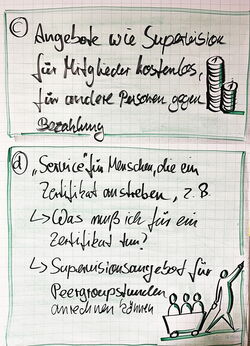 c) Angebote wie Supervision
für Mitglieder kostenlos,
für andere Personen gegen
Bezahlung
d) „Service" für Menschen, die ein
Zertifikat anstreben, z.B.
↳ Was muß ich für ein
Zertifikat tun?
↳ Supervisionsangebot für
Peergroupstunden
anrechnen können